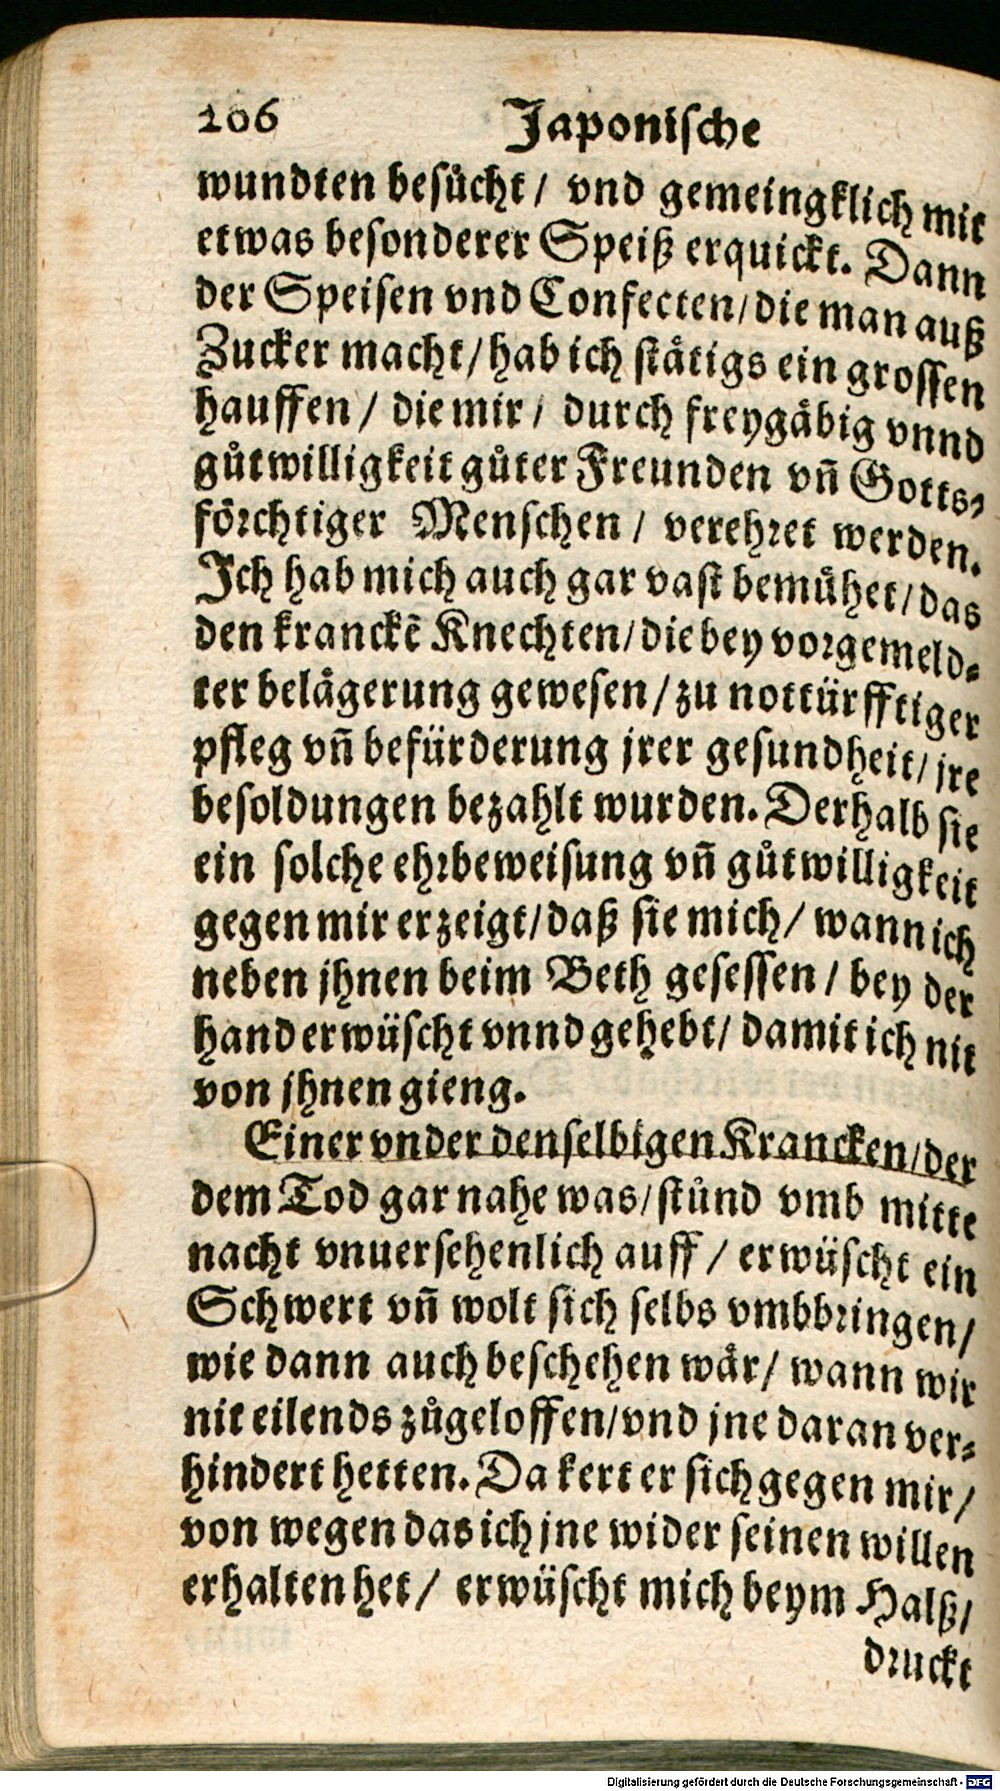 206 Japonische
wundten besůcht / vnd gemeingklich mit
etwas besonderer Speiß erquickt. Dann
der Speisen vnd Confecten / die man auß
Zucker macht / hab ich stätigs ein grossen
hauffen / die mir / durch freygäbig vnnd
gůtwilligkeit gůter Freunden vñ Gotts-
förchtiger Menschen / verehret werden.
Ich hab mich auch gar vast bemühet / das
den kranckẽ Knechten / die bey vorgemeld-
ter belägerung gewesen / zu nottürfftiger
pfleg vñ befürderung jrer gesundheit / jre
besoldungen bezahlt wurden. Derhalb sie
ein solche ehrbeweisung vñ gůtwilligkeit
gegen mir erzeigt / daß sie mich / wann ich
neben jhnen beim Beth gesessen / bey der
hand erwüscht vnnd gehebt / damit ich nit
von jhnen gieng.
Einer vnder denselbigen Krancken / der
dem Tod gar nahe was / stůnd vmb mitte
nacht vnuersehenlich auff / erwüscht ein
Schwert vñ wolt sich selbs vmbbringen /
wie dann auch beschehen wär / wann wir
nit eilends zůgeloffen / vnd jne daran ver-
hindert hetten. Da kert er sich gegen mir /
von wegen das ich jne wider seinen willen
erhalten het / erwüscht mich beym Halß /
druckt
Digitalisierung gefördert durch die Deutsche Forschungsgemeinschaft - DFG